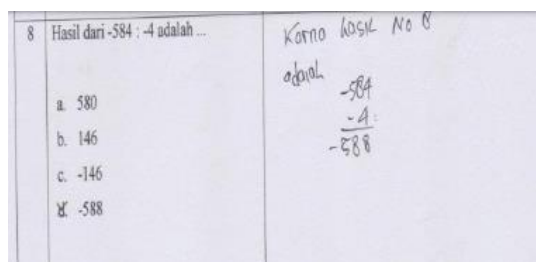 8 Hasil dari -584 : -4 adalah ...
a. 580
b. 146
c. -146
d. -588
Karna hasil No 8
adalah
-584
-4 :
-588